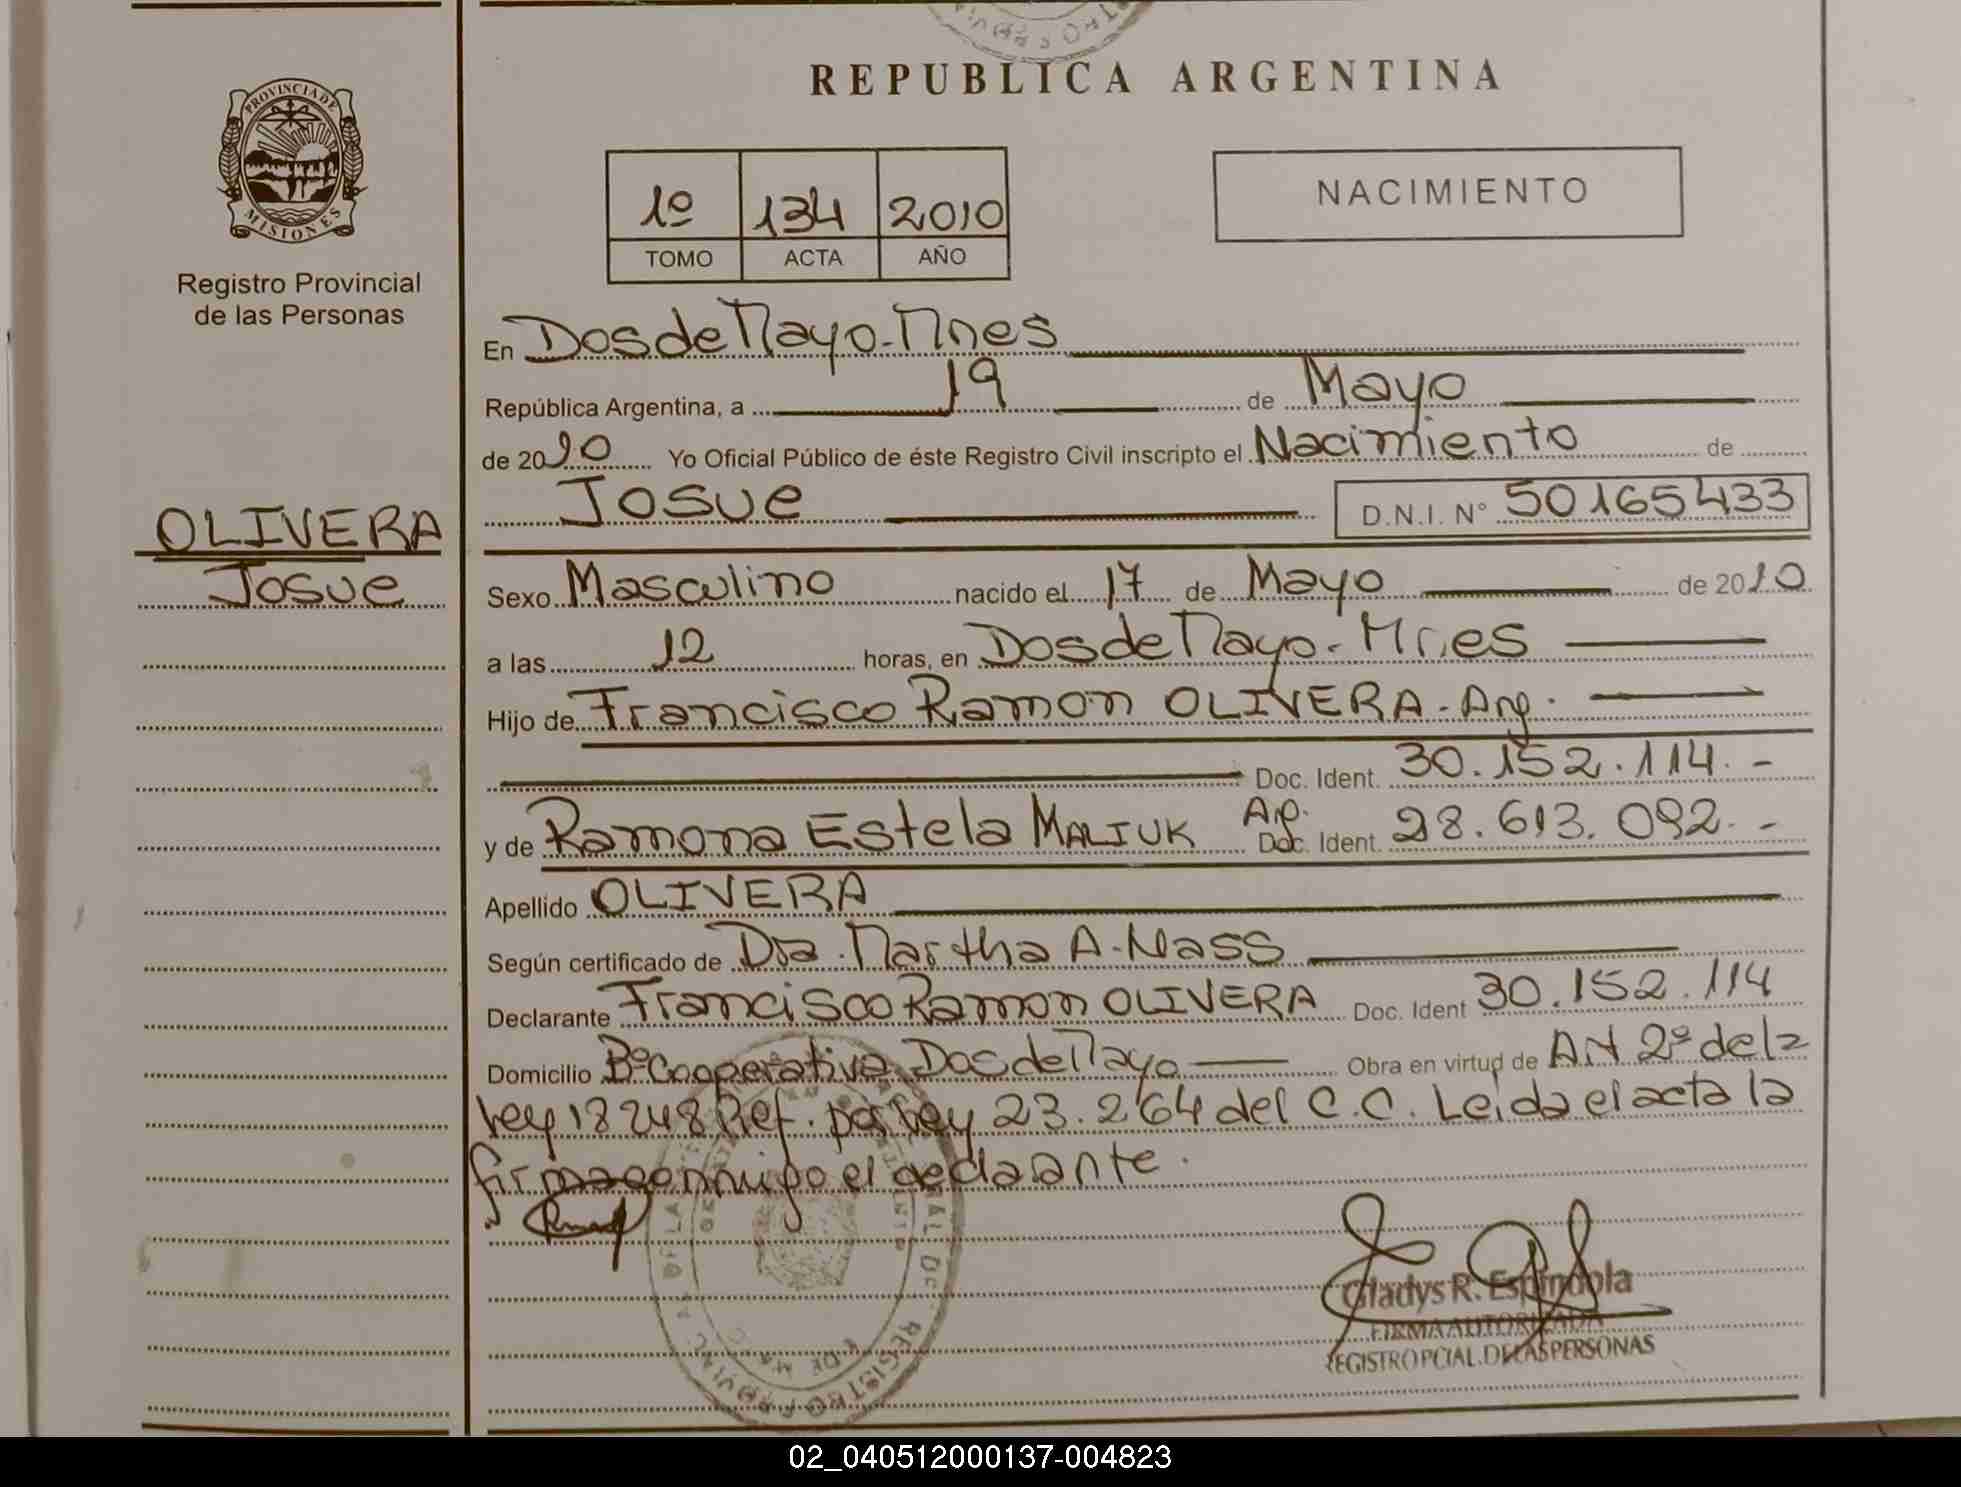 REPUBLICA ARGENTINA
PROVINCIA DE
MISIONES
Registro Provincial
de las Personas
1º 134 2010
TOMO ACTA AÑO
NACIMIENTO
En Dos de Mayo - Mnes
República Argentina, a 19 de Mayo
de 2010 Yo Oficial Público de éste Registro Civil inscripto el Nacimiento de
Josue D.N.I. N° 50165433
OLIVERA
Josue
Sexo Masculino nacido el 17 de Mayo de 2010
a las 12 horas, en Dos de Mayo - Mnes
Hijo de Francisco Ramon OLIVERA - Arg.
Doc. Ident. 30.152.114.-
y de Ramona Estela MALIUK Arg. Doc. Ident. 28.613.092.-
Apellido OLIVERA
Según certificado de Dra. Martha A. Nass
Declarante Francisco Ramon OLIVERA Doc. Ident 30.152.114
Domicilio Bº Cooperativa Dos de Mayo Obra en virtud de Art 2º de la
Ley 18248 Ref. por Ley 23.264 del C.C. Leida el acta la
firma conmigo el declarante.
Gladys R. Espindola
FIRMA AUTORIZADA
REGISTRO PCIAL. DE LAS PERSONAS
02_040512000137-004823